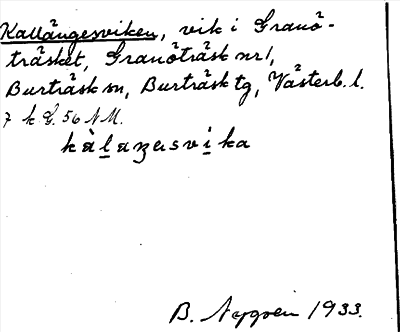 Kallångesviken, vik i Granö-
träsket, Granöträsk nr 1,
Burträsk sn, Burträsk tg, Västerb. l.
7 k L. 56 N M.
B. 1933.